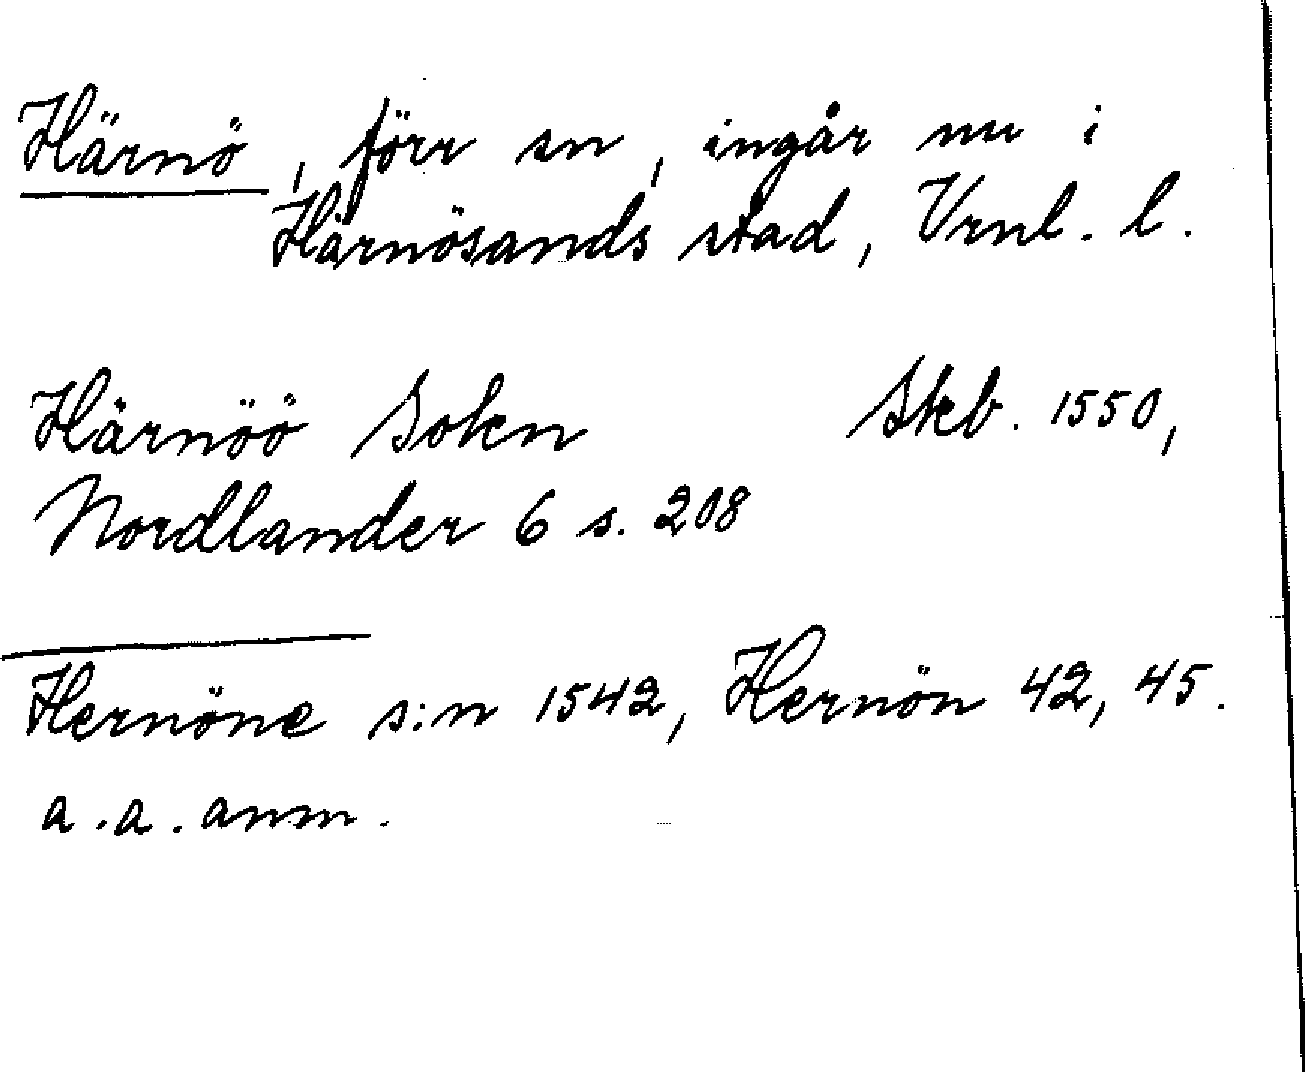 Härnö, förr sn, ingår nu i
Härnösands stad, Vrnl. l.
Härnöö Sokn Skb. 1550,
Nordlander 6 s. 208
Hernöne s:n 1542, Hernön 42, 45.
a.a. anm.